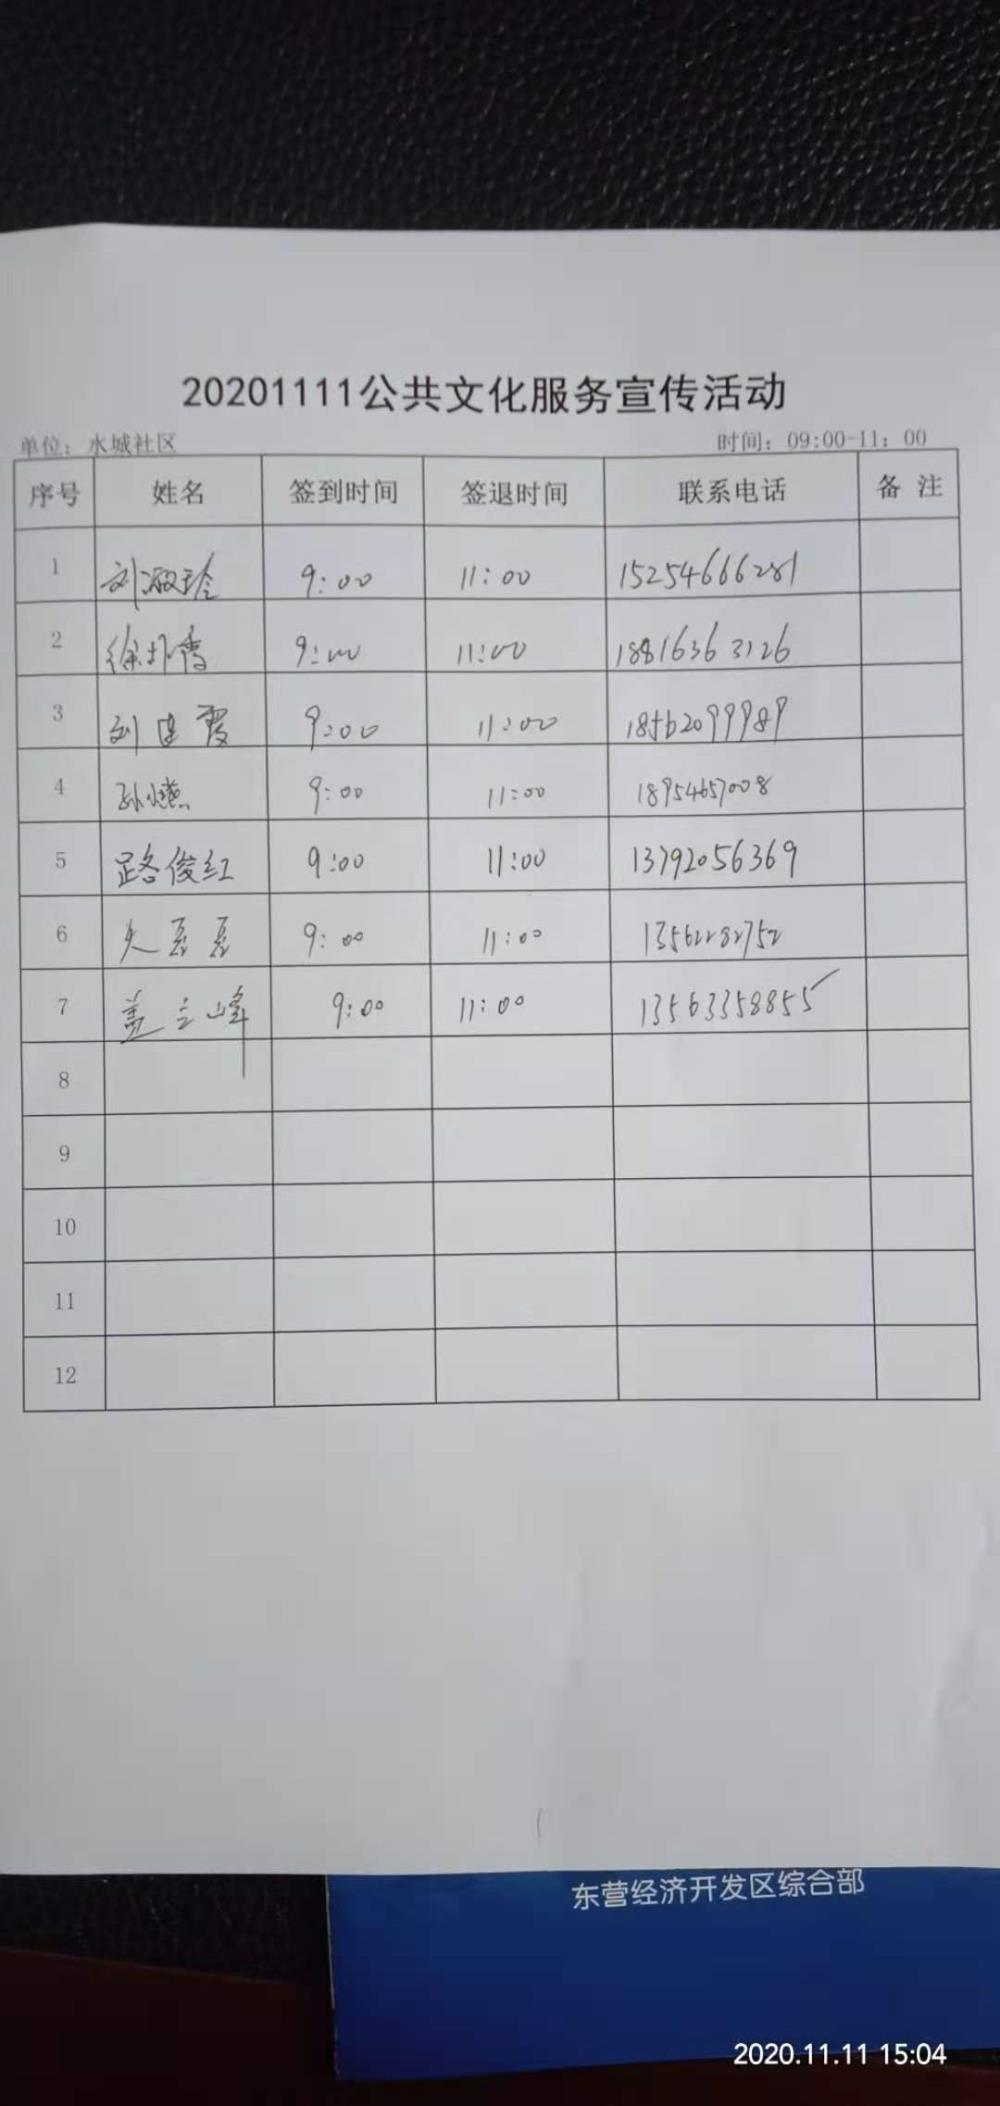 20201111公共文化服务宣传活动
单位：水城社区 时间：09:00-11：00
序号 姓名 签到时间 签退时间 联系电话 备 注
1 刘淑玲 9:00 11:00 15254666281
2 徐 香 9:00 11:00 18816363126
3 刘建霞 9:00 11:00 18562099989
4 孙燕 9:00 11:00 18954657008
5 路俊红 9:00 11:00 13792056369
6 磊磊 9:00 11:00 13562282752
7 盖立峰 9:00 11:00 13563358855
8
9
10
11
12
东营经济开发区综合部
2020.11.11 15:04